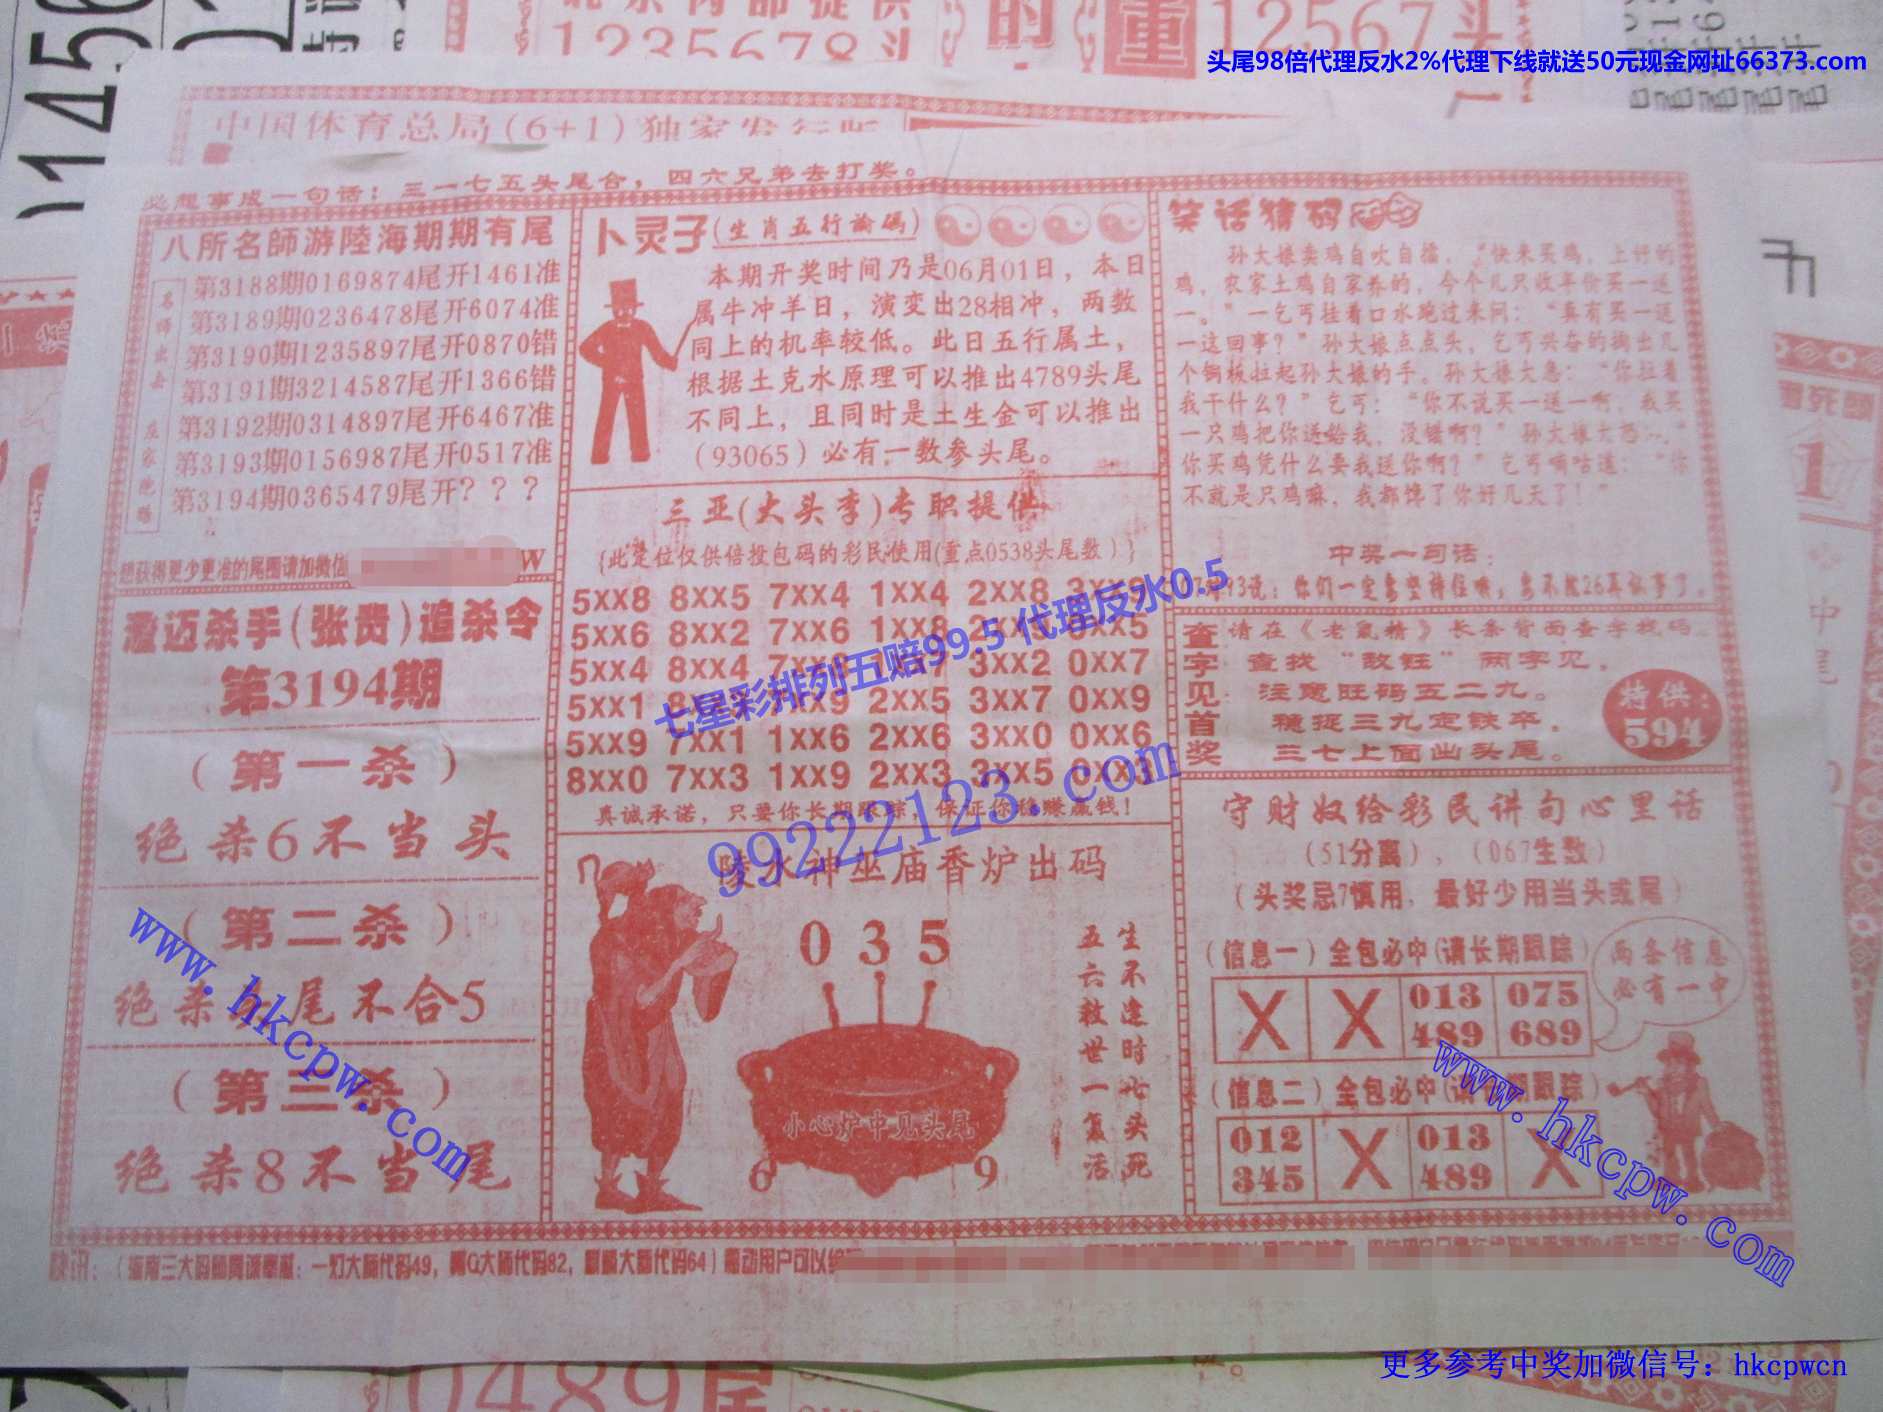 头尾98倍代理反水2%代理下线就送50元现金网址66373.com
1235678头
12567头
的
重
中国体育总局(6+1)独家发行版
必想事成一句话：三一七五头尾合，四六兄弟去打奖。
八所名師游陸海期期有尾
第3188期0169874尾开1461准
第3189期0236478尾开6074准
第3190期1235897尾开0870错
第3191期3214587尾开1366错
第3192期0314897尾开6467准
第3193期0156987尾开0517准
第3194期0365479尾开？？？
想获得更少更准的尾圈请加微信
W
澄迈杀手(张贵)追杀令
第3194期
(第一杀)
绝杀6不当头
(第二杀)
绝杀头尾不合5
(第三杀)
绝杀8不当尾
卜灵子(生肖五行論碼)
本期开奖时间乃是06月01日，本日
属牛冲羊日，演变出28相冲，两数
同上的机率较低。此日五行属土，
根据土克水原理可以推出4789头尾
不同上，且同时是土生金可以推出
(93065)必有一数参头尾。
三亚(大头李)专职提供
{此定位仅供倍投包码的彩民使用(重点0538头尾数)}
5XX8 8XX5 7XX4 1XX4 2XX8 3XX9
5XX6 8XX2 7XX6 1XX8
5XX4 8XX4 3XX2 0XX7
5XX1 2XX5 3XX7 0XX9
5XX9 7XX1 1XX6 2XX6 3XX0 0XX6
8XX0 7XX3 1XX9 2XX3 3XX5 0XX3
真诚承诺，只要你长期跟踪，保证你稳赚赢钱！
陵水神巫庙香炉出码
035
小心炉中见头尾
6
9
生不逢时七头死
五六救世一复活
笑话猜码
孙大娘卖鸡自吹自擂，“快来买鸡，上好的
鸡，农家土鸡自家养的，今个儿只收半价买一送
一。”一乞丐挂着口水跑过来问：“真有买一送
一这回事？”孙大娘点点头，乞丐兴奋的掏出几
个铜板拉起孙大娘的手。孙大娘大急：“你拉着
我干什么？”乞丐：“你不说买一送一啊，我买
一只鸡把你送给我，没错啊？”孙大娘大怒……“
你买鸡凭什么要我送你啊？”乞丐嘀咕道：“你
不就是只鸡嘛，我都馋了你好几天了！”
中奖一句话：
查字见首奖
请在《老鼠精》长条背面查字找码
查找“敌钰”两字见，
注意旺码五二九。
稳捉三九定铁卒，
三七上面出头尾。
特供：
594
守财奴给彩民讲句心里话
(51分离)，(067生数)
(头奖忌7慎用，最好少用当头或尾)
(信息一)全包必中(请长期跟踪)
X X 013 075
489 689
两条信息
必有一中
(信息二)全包必中(请长期跟踪)
012 X 013 X
345 489
七星彩排列五赔99.5 代理反水0.5
99222123.com
www.hkcpw.com
www.hkcpw.com
0489尾
更多参考中奖加微信号：hkcpwcn